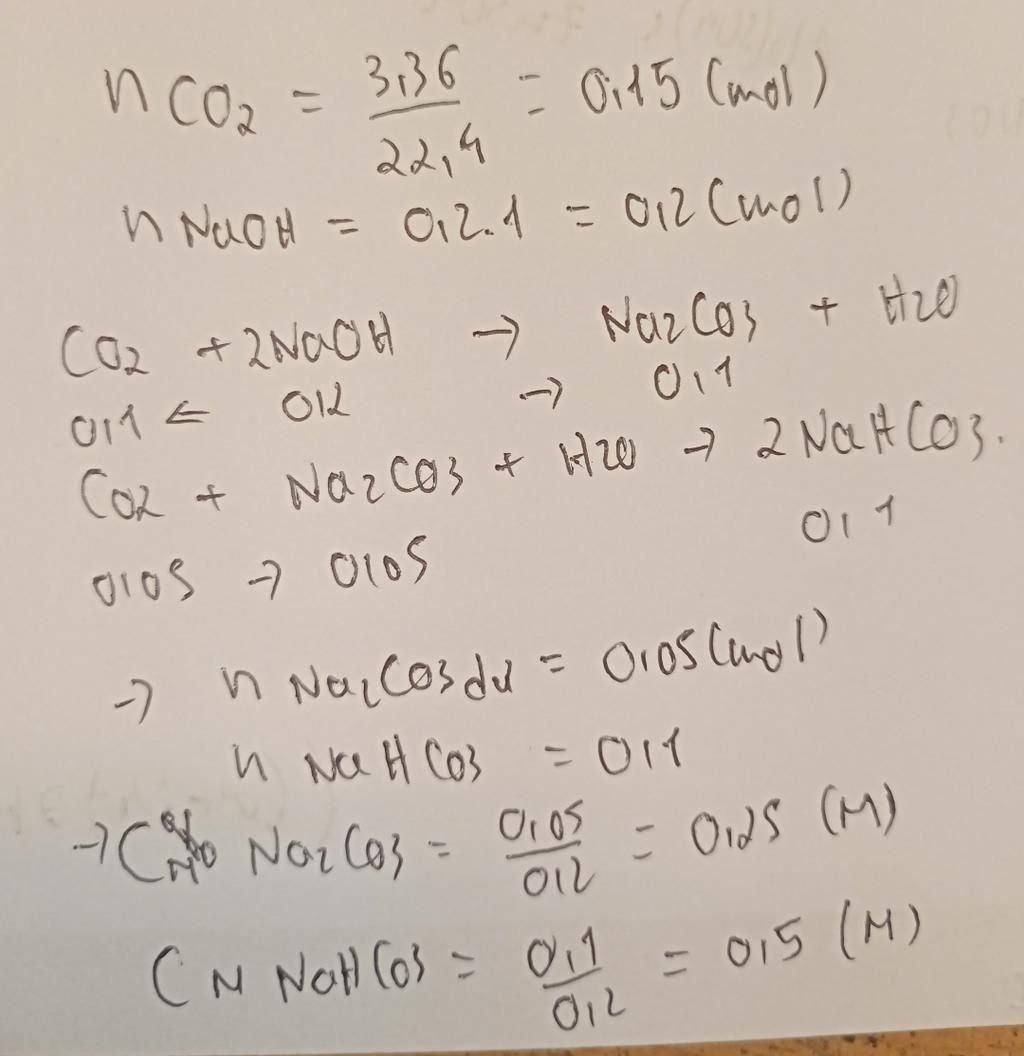 nCO2 = 3,36/22,4 = 0,15 (mol)
nNaOH = 0,2.1 = 0,2 (mol)
CO2 + 2NaOH → Na2CO3 + H2O
0,1 ← 0,2 → 0,1
CO2 + Na2CO3 + H2O → 2NaHCO3.
0,05 → 0,05 0,1
→ nNa2CO3 dư = 0,05 (mol)
nNaHCO3 = 0,1
→ CM Na2CO3 = 0,05/0,2 = 0,25 (M)
CM NaHCO3 = 0,1/0,2 = 0,5 (M)